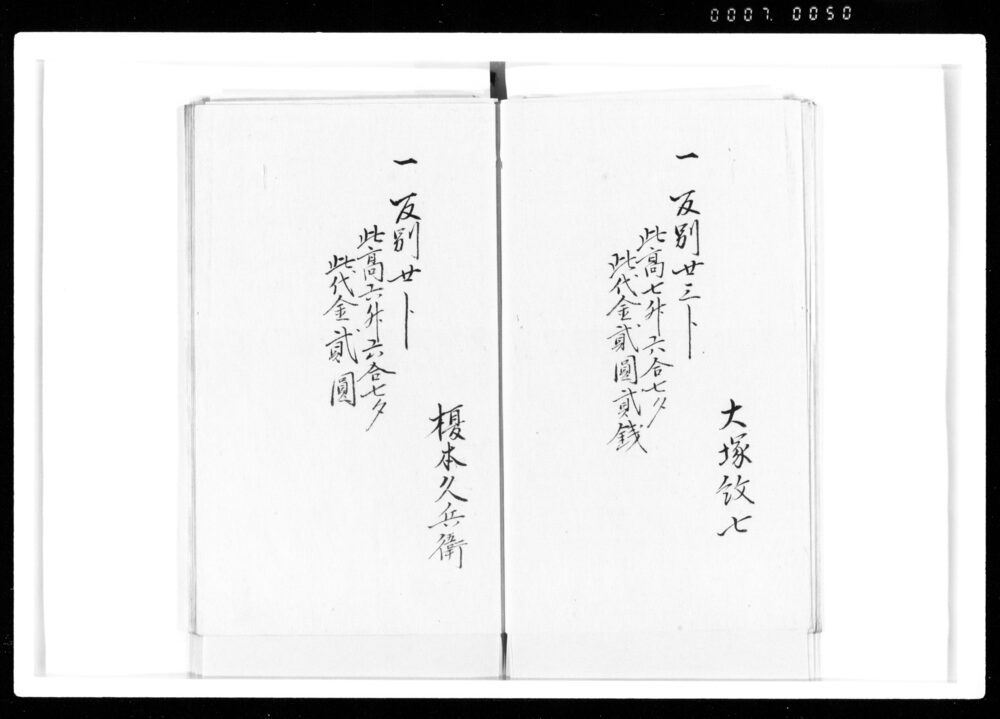 0007. 0050
大塚敛七
一 反別廿三卜
此高七升六合七夕
此代金貳圓貳錢
榎本久兵衛
一 反別廿卜
此高六升六合七夕
此代金貳圓